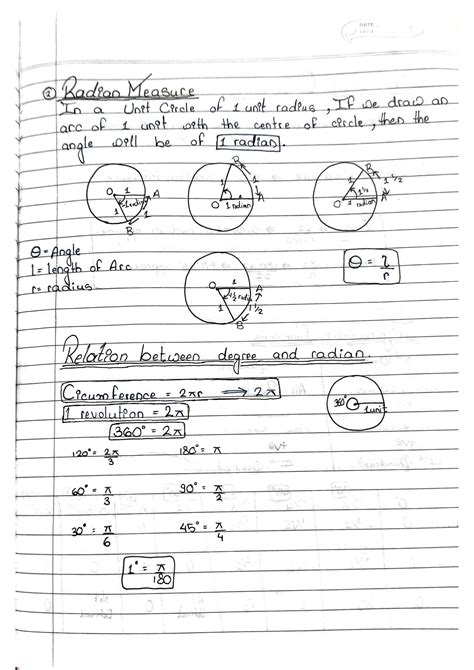 DATE
② Radian Measure
In a Unit Circle of 1 unit radius, If we draw an
arc of 1 unit with the centre of circle, then the
angle will be of 1 radian.
O 1 A
1 radian
1 1
B
B
1 1
O 1 radian A
B
1 1 1/2
1 1/2
O 1 radian A
θ = Angle
l = length of Arc
r = radius
O 1 A
1 1/2 radian
1 1 1/2
B
θ = l/r
Relation between degree and radian.
Cicumference = 2πr ⟹ 2π
1 revolution = 2π
360° = 2π
360° 1 unit
120° = 2π/3 180° = π
60° = π/3 90° = π/2
30° = π/6 45° = π/4
1° = π/180